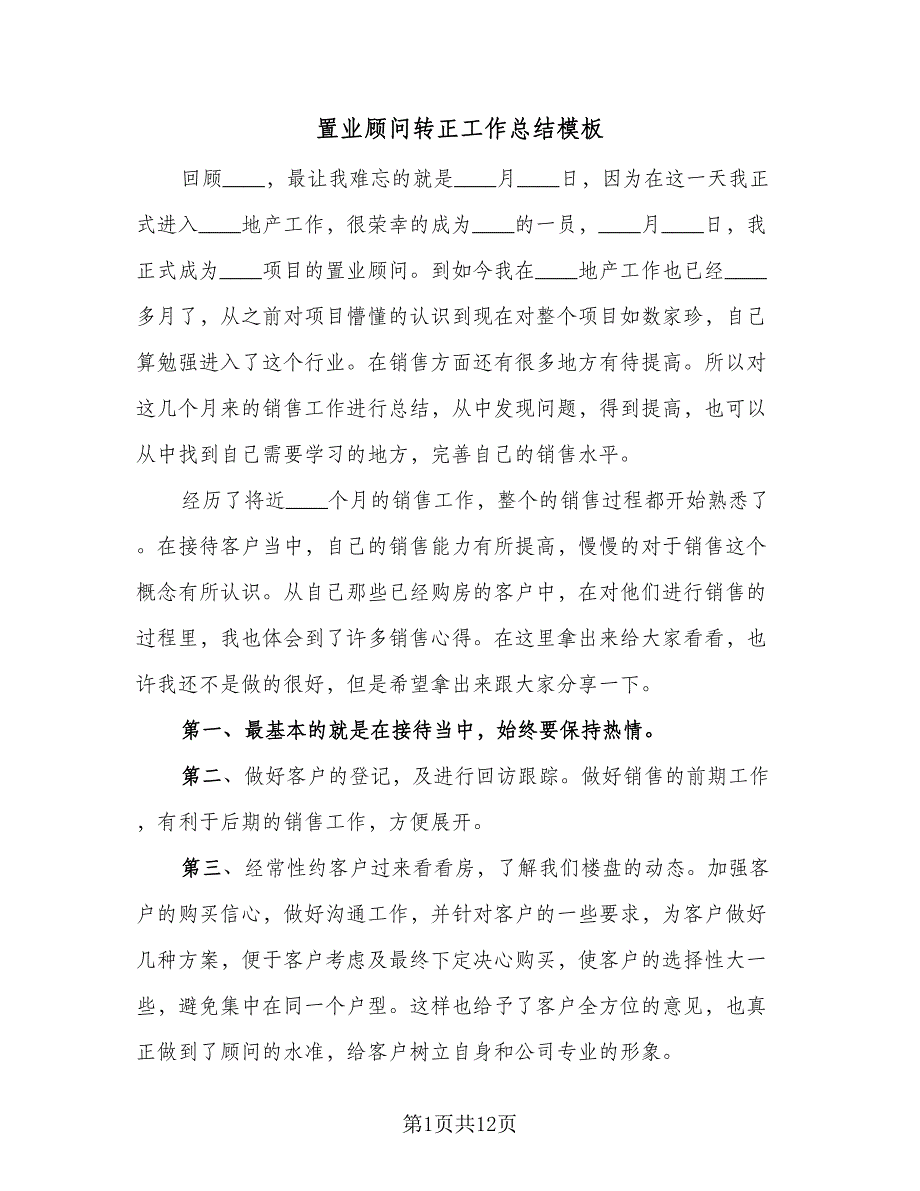 置业顾问转正工作总结模板
回顾____，最让我难忘的就是____月____日，因为在这一天我正
式进入____地产工作，很荣幸的成为____的一员，____月____日，我
正式成为____项目的置业顾问。到如今我在____地产工作也已经____
多月了，从之前对项目懵懂的认识到现在对整个项目如数家珍，自己
算勉强进入了这个行业。在销售方面还有很多地方有待提高。所以对
这几个月来的销售工作进行总结，从中发现问题，得到提高，也可以
从中找到自己需要学习的地方，完善自己的销售水平。
经历了将近____个月的销售工作，整个的销售过程都开始熟悉了
。在接待客户当中，自己的销售能力有所提高，慢慢的对于销售这个
概念有所认识。从自己那些已经购房的客户中，在对他们进行销售的
过程里，我也体会到了许多销售心得。在这里拿出来给大家看看，也
许我还不是做的很好，但是希望拿出来跟大家分享一下。
第一、最基本的就是在接待当中，始终要保持热情。
第二、做好客户的登记，及进行回访跟踪。做好销售的前期工作
，有利于后期的销售工作，方便展开。
第三、经常性约客户过来看看房，了解我们楼盘的动态。加强客
户的购买信心，做好沟通工作，并针对客户的一些要求，为客户做好
几种方案，便于客户考虑及最终下定决心购买，使客户的选择性大一
些，避免集中在同一个户型。这样也给予了客户全方位的意见，也真
正做到了顾问的水准，给客户树立自身和公司专业的形象。
第1页共12页